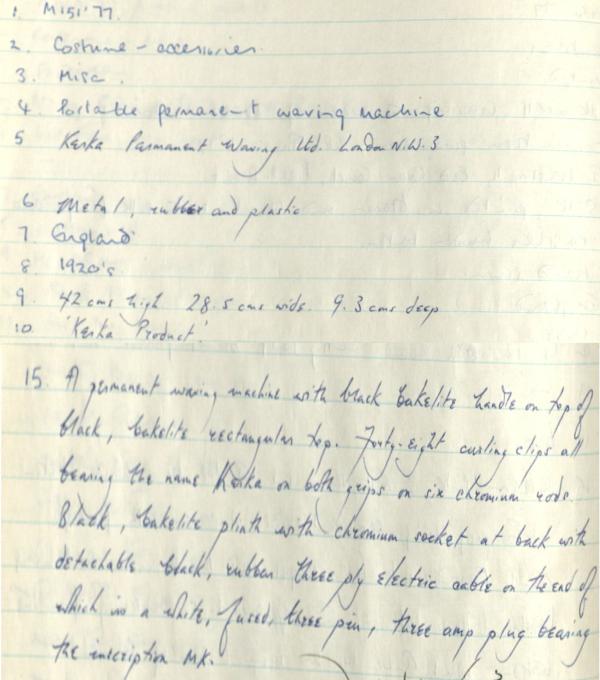 1. M151'77.
2. Costume - accessories.
3. Misc.
4. Portable permanent waving machine
5 Kerka Permanent Waving Ltd. London N.W.3
6 Metal, rubber and plastic
7. England
8. 1920's.
9. 42 cms high 28.5 cms wide. 9.3 cms deep
10. 'Kerka Product'
15. A permanent waving machine with black bakelite handle on top of
black, bakelite rectangular top. Forty-eight curling clips all
bearing the name Kerka on both grips on six chromium rods.
Black, bakelite plinth with chromium socket at back with
detachable black, rubber three ply electric cable on the end of
which is a white, fused, three pin, three amp plug bearing
the inscription MK.